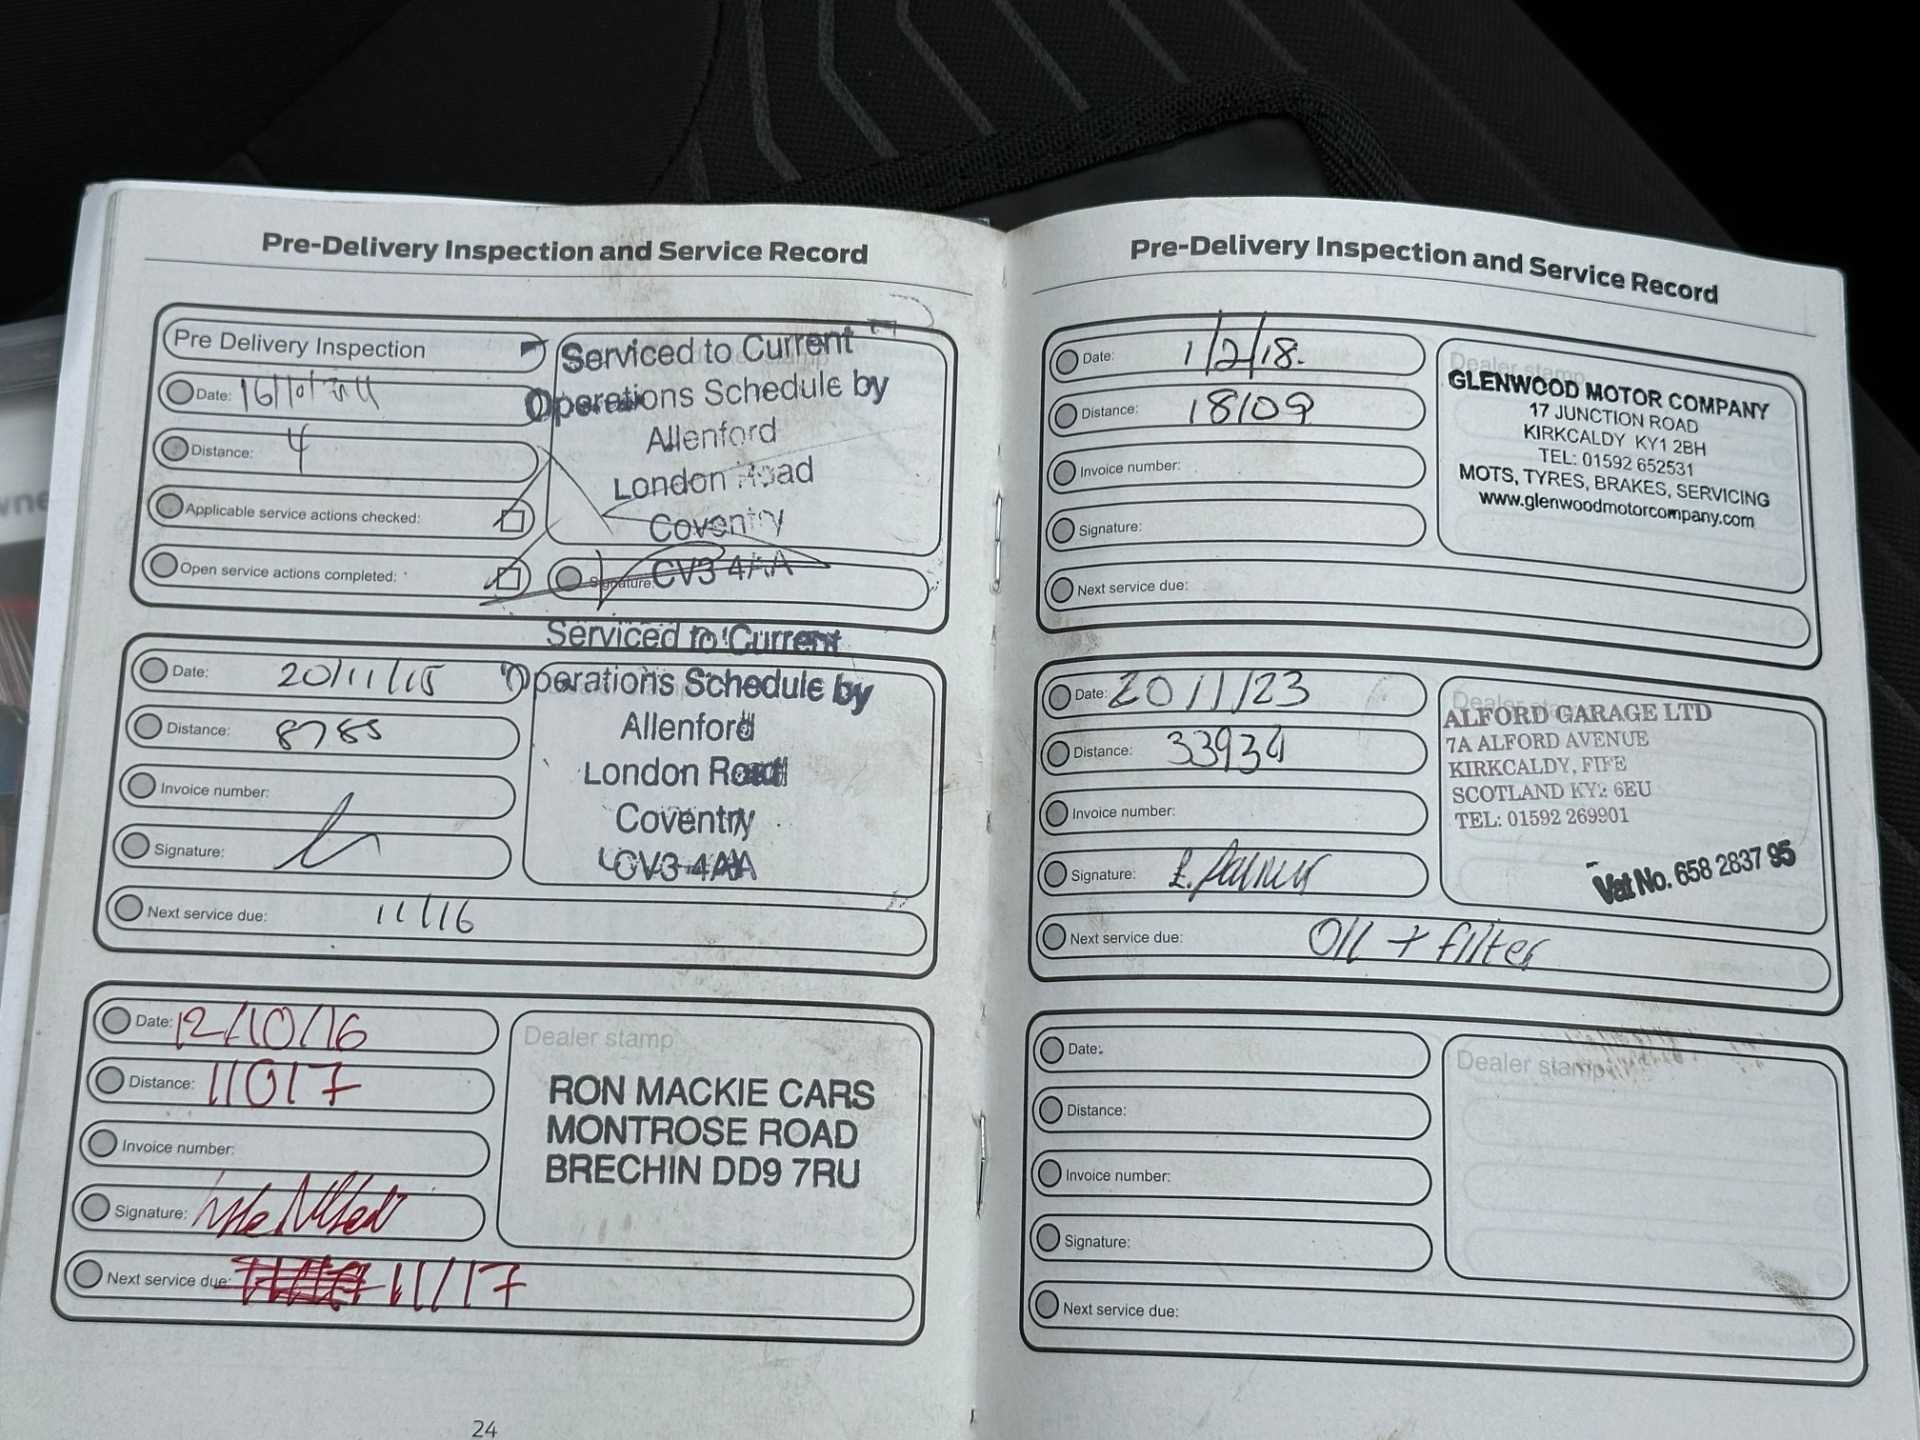 Pre-Delivery Inspection and Service Record
Pre Delivery Inspection
Date:
Distance: 4
Applicable service actions checked:
Open service actions completed:
Signature:
Serviced to Current
Operations Schedule by
Allenford
London Road
Coventry
CV3 4AA
Date: 20/11/15
Distance: 8785
Invoice number:
Signature:
Next service due: 11/16
Serviced to Current
Operations Schedule by
Allenford
London Road
Coventry
CV3 4AA
Date: 12/10/16
Distance: 11017
Invoice number:
Signature:
Next service due: 11/17
Dealer stamp
RON MACKIE CARS
MONTROSE ROAD
BRECHIN DD9 7RU
24
Pre-Delivery Inspection and Service Record
Date: 1/2/18.
Distance: 18109
Invoice number:
Signature:
Next service due:
Dealer stamp
GLENWOOD MOTOR COMPANY
17 JUNCTION ROAD
KIRKCALDY KY1 2BH
TEL: 01592 652531
MOTS, TYRES, BRAKES, SERVICING
www.glenwoodmotorcompany.com
Date: 20/11/23
Distance: 33934
Invoice number:
Signature:
Next service due: Oil + filter
Dealer stamp
ALFORD GARAGE LTD
7A ALFORD AVENUE
KIRKCALDY, FIFE
SCOTLAND KY2 6EU
TEL: 01592 269901
Vat No. 658 2837 95
Date:
Distance:
Invoice number:
Signature:
Next service due:
Dealer stamp